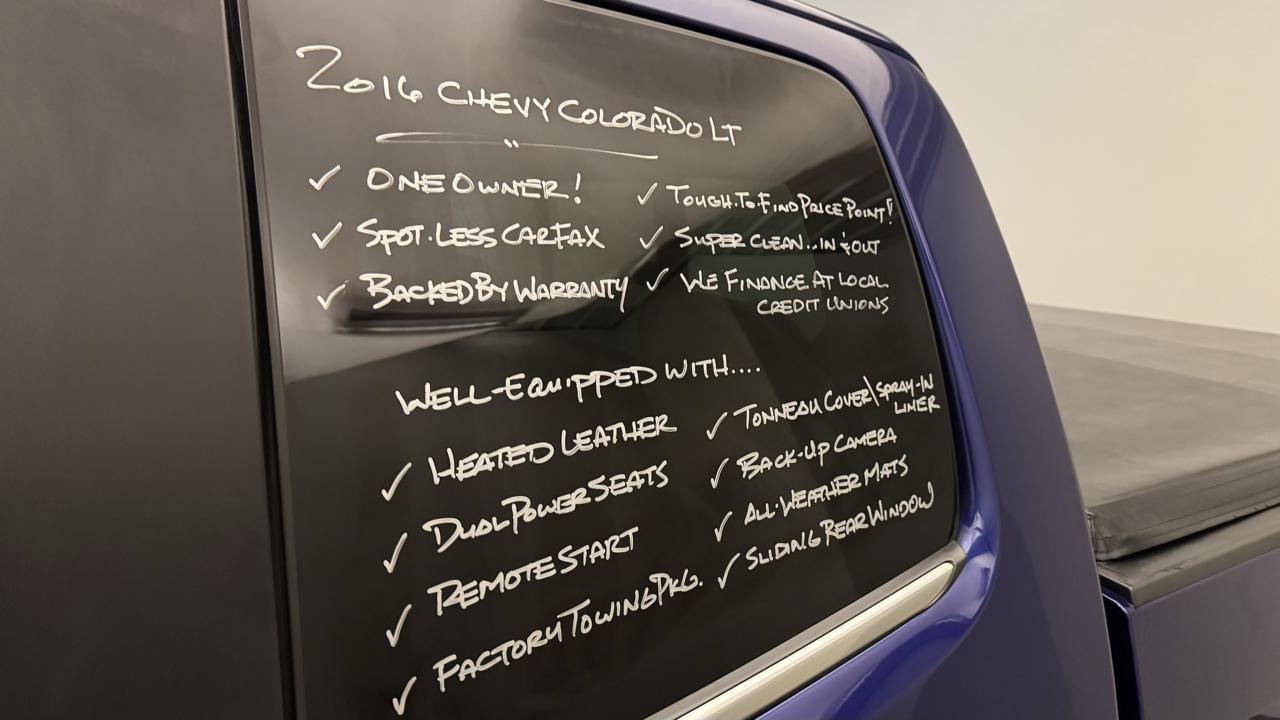 2016 CHEVY COLORADO LT
✓ ONE OWNER!
✓ SPOT-LESS CARFAX
✓ BACKED BY WARRANTY
✓ TOUGH-TO-FIND PRICE POINT!
✓ SUPER CLEAN...IN & OUT
✓ WE FINANCE AT LOCAL
CREDIT UNIONS
WELL-EQUIPPED WITH....
✓ HEATED LEATHER
✓ DUAL POWER SEATS
✓ REMOTE START
✓ FACTORY TOWING PKG.
✓ TONNEAU COVER\SPRAY-IN
LINER
✓ BACK-UP CAMERA
✓ ALL-WEATHER MATS
✓ SLIDING REAR WINDOW